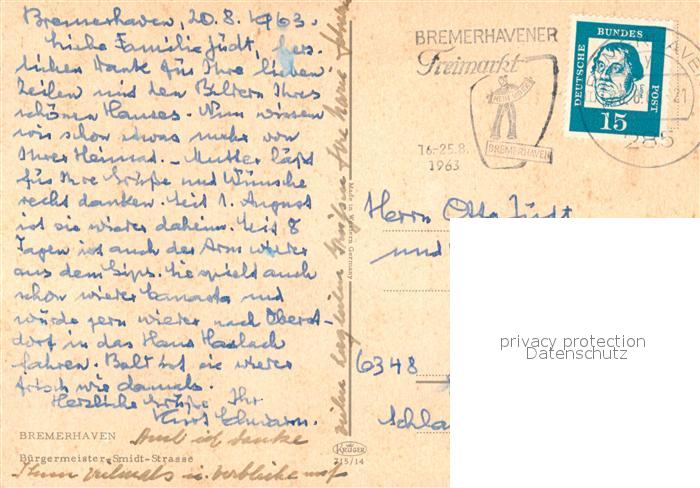 Bremerhaven, 20.8.1963.
Liebe Familie Jüdt, herz-
lichen Dank für Ihre lieben
Zeilen mit den Bildern Ihres
schönen Hauses. Nun wissen
wir schon etwas mehr von
Ihrer Heimat. – Mutter läßt
für Ihre Grüße und Wünsche
recht danken. Seit 1. August
ist sie wieder daheim. Seit 8
Tagen ist auch der Arm wieder
aus dem Gips. Sie spielt auch
schon wieder Canasta und
würde gern wieder nach Oberst-
dorf in das Haus Haslach
fahren. Bald ist sie wieder
frisch wie damals.
Herzliche Grüße Ihr
Kurt
Auch ich danke
Ihnen vielmals u. verbleibe mit
vielen herzlichen Grüßen Ihre
BREMERHAVEN
Bürgermeister-Smidt-Strasse
Made in Western Germany
KRÜGER
715/14
BREMERHAVENER
Freimarkt
16.-25.8.
1963
BREMERHAVEN
DEUTSCHE BUNDES POST
15
21
285
Herrn Otto Jüdt
und
6348
Schla
privacy protection
Datenschutz